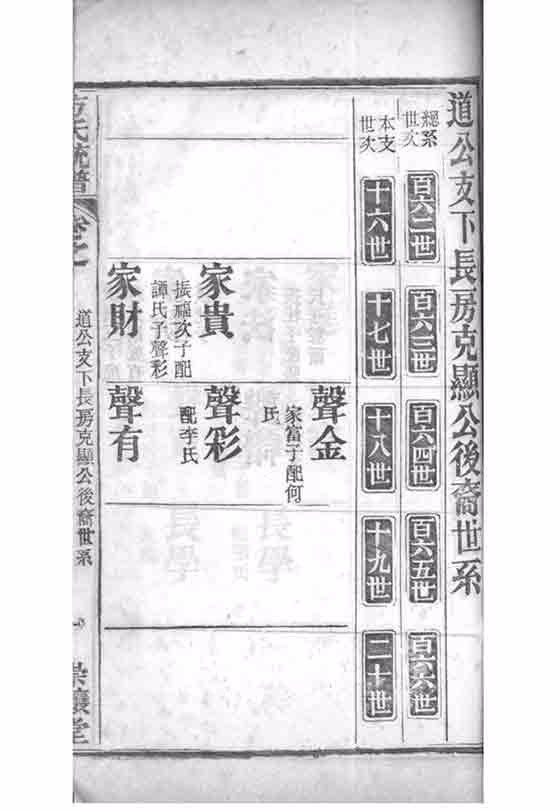 道公支下長房克顯公後裔世系
總系世次
百六二世
百六三世
百六四世
百六五世
百六六世
本支世次
十六世
十七世
十八世
十九世
二十世
聲金
家富子配何
氏
家貴
振福次子配
譚氏子聲彩
聲彩
配李氏
家財
聲有
方氏統譜
卷之
道公支下長房克顯公後裔世系